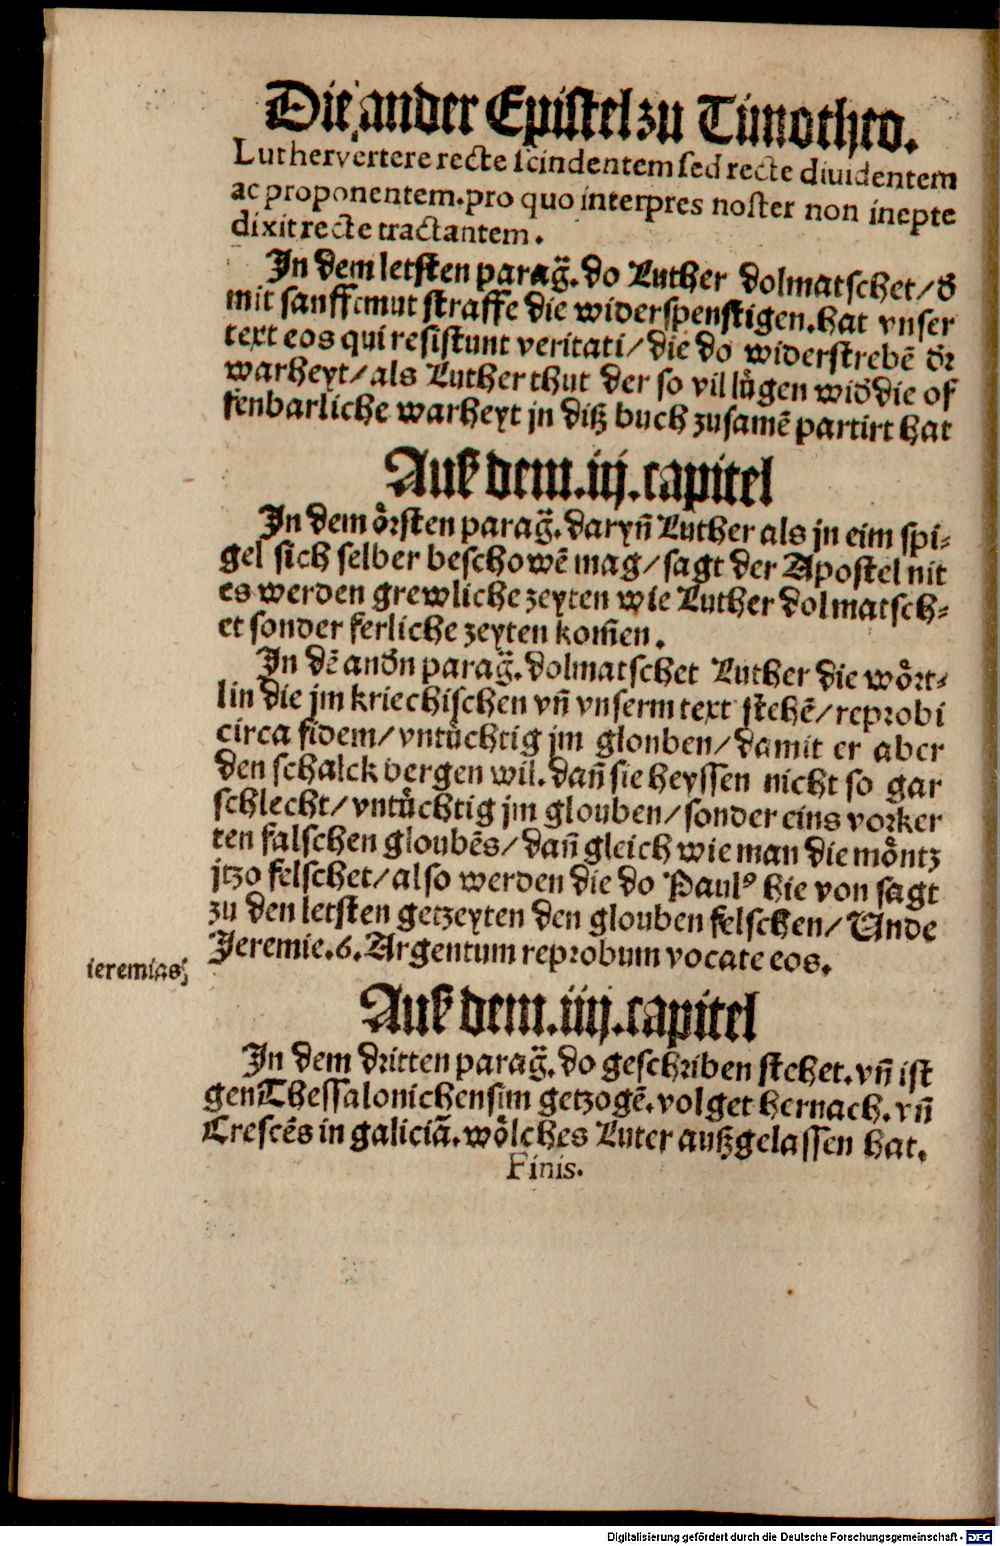 Die ander Epistel zu Timotheo.
Luther vertere recte scindentem sed recte diuidentem
ac proponentem. pro quo interpres noster non inepte
dixit recte tractantem.
In dem letsten parag̃. do Luther dolmatschet/ d̕
mit sanfftmut straffe die widerspenstigen. hat vnser
text eos qui resistunt veritati/ die do widerstrebē d̕r
warheyt/ als Luther thut der so vil lůgen wid̕ die of
fenbarliche warheyt jn ditz buch zusamē partirt hat
Auß dem .iij. capitel
In dem ŏrsten parag̃. daryñ Luther als jn eim spi-
gel sich selber beschowē mag/ sagt der Apostel nit
es werden grewliche zeyten wie Luther dolmatsch-
et sonder ferliche zeyten kom̄en.
In dē and̕n parag̃. dolmatschet Luther die woͤrt-
lin die jm kriechischen vñ vnserm text stehē/ reprobi
circa fidem/ vntuͤchtig jm glouben/ damit er aber
den schalck bergen wil. dañ sie heyssen nicht so gar
schlecht/ vntuͤchtig jm glouben/ sonder eins vorker
ten falschen gloubēs/ dañ gleich wie man die moͤntz
jtzo felschet/ also werden die do Paulꝰ hie von sagt
zu den letsten getzeyten den glouben felschen/ Unde
Jeremie. 6. Argentum reprobum vocate eos.
ieremias
Auß dem .iiij. capitel
In dem dritten parag̃. do geschriben stehet. vñ ist
gen Thessalonichensim getzogē. volget hernach. vñ
Crescēs in galiciā. woͤlches Luter außgelassen hat.
Finis.
Digitalisierung gefördert durch die Deutsche Forschungsgemeinschaft - DFG